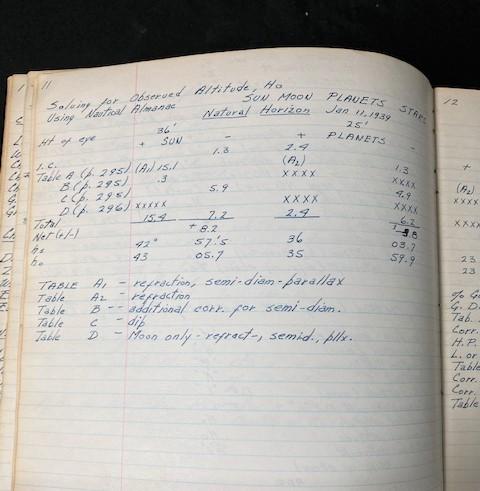 11
Solving for Observed Altitude, Ho
Using Nautical Almanac SUN MOON PLANETS STARS
Natural Horizon Jan 11, 1939
Ht of eye 36' 25'
+ SUN - + PLANETS -
I.C. 1.3 2.4 1.3
Table A (p. 295) (A1) 15.1 (A2) xxxx
B (p. 295) .3 xxxx 4.9
C (p. 295) 5.9 xxxx
D (p. 296) xxxxx xxxx
Total 15.4 7.2 2.4 6.2
Net (+/-) + 8.2 3.8
hs 42° 57.'5 36 03.7
ho 43 05.7 35 59.9
TABLE A1 - refraction, semi-diam-parallax
Table A2 - refraction
Table B - additional corr. for semi-diam.
Table C - dip
Table D - Moon only - refract-, semid., pllx.
12
+
(A2)
xxxx
xxxx
23
23
% G.
G. D.
Tab.
Corr.
H.P.
L. or
Table
Corr.
Corr.
Table